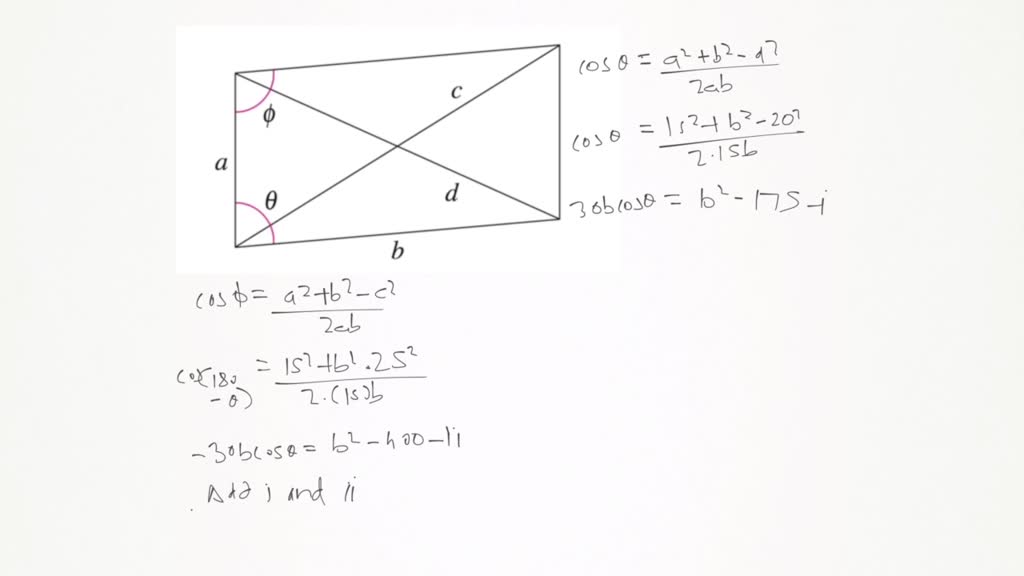 a
ϕ
θ
c
d
b
cos θ = a²+b²-d² / 2ab
cos θ = 15²+b²-20² / 2·15b
30b cosθ = b²-175 -i
cos ϕ = a²+b²-c² / 2ab
cos(180-θ) = 15²+b²·25² / 2·(15)b
-30b cosθ = b²-400 -ii
Add i and ii